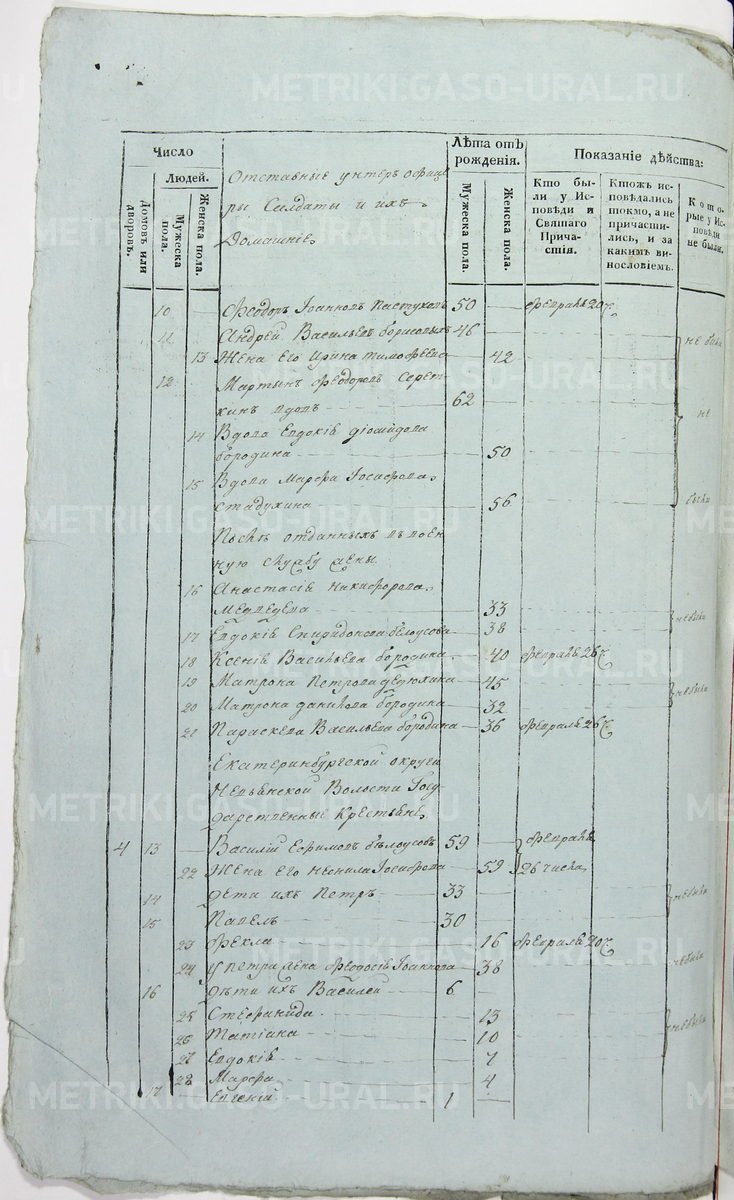 METRIKI.GASO-URAL.RU
Число
Людей.
Домовъ или дворовъ.
Мужеска пола.
Женска пола.
Отставные унтеръ офице
ры Солдаты и ихъ
Домашніе
Лѣта отъ рожденія.
Мужеска пола.
Женска пола.
Показаніе дѣйства:
Кто бы-
ли у Ис-
повѣди и
Святаго
Прича-
стія.
Ктожъ ис-
повѣдались
токмо, а не
причасти-
лись, и за
какимъ ви-
нословіемъ.
Кото-
рые у Ис-
повѣди
не были.
10 Феодоръ Іоанновъ Пастуховъ 50 февраля 20ч
11 Андрей Васильевъ Борисовыхъ 46
13 Жена его Ирина Тимофеева 42 не были
12 Мартынъ Феодоровъ Серет-
кинъ вдовъ 62
14 Вдова Евдокія Діомидова не
Бородина 50
15 Вдова Марфа Іосифова
Стадухина 56 были
Послѣ отданныхъ въ воен
ную службу жены
16 Анастасія Никифорова
Медведева 33
17 Евдокія Спиридонова Белоусова 38 не были
18 Ксенія Васильева Бородина 40 февраля 26ч
19 Матрона Петрова Дедюхина 45
20 Матрона Данилова Бородина 32 не были
21 Параскева Васильева Бородина 36 февраля 26ч
Екатеринбургской округи
Невьянской Волости Госу-
дарственные Крестьяне
4 13 Василій Ефимовъ Бѣлоусовъ 59 февраля
22 Жена его Неонила Іосифова 59 26 числа
14 Дети ихъ Петръ 33 не были
15 Павелъ 30
23 Фекла 16 февраля 20ч
24 У Петра жена Феодосія Іоаннова 38 не были
16 Дѣти ихъ Василей 6
25 Стефанида 13
26 Татіана 10 не были
27 Евдокія 7
28 Марфа 4
17 Евгеній 1